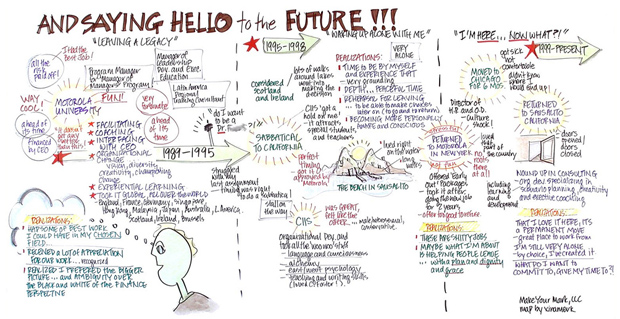 AND SAYING HELLO to the FUTURE!!!
"LEAVING A LEGACY"
I had the
Best Job!
all the
risk
paid off!
WAY
COOL!
MOTOROLA
UNIVERSITY
FUN!
ahead of
its time
Financed
by CEO
Program Manager
Manager of
Managers' Program
Manager of
Leadership
Dev. and Exec.
Education
Latin America
Regional
Training Consultant
very
fortunate
ahead of
its time
FACILITATING
COACHING
INTERFACING
WITH CEO
ORGANIZATIONAL
CHANGE
vision, diversity
creativity,
change
EXPERIENTIAL LEARNING
TOOK IT GLOBAL, ALL OVER THE WORLD
England, France, Germany, Singapore,
Hong Kong, Malaysia, Japan, Australia, L. America
Scotland, Ireland, Brussels
1989-1995
do I want
to be a
struggled
with my
last assignment
timing was right
to do a sabbatical
REALIZATIONS:
HAD SOME OF BEST WORK
I COULD HAVE IN MY CHOSEN
FIELD...
RECEIVED A LOT OF APPRECIATION
FOR OUR WORK... recognized
REALIZED I PREFERRED THE BIGGER
PICTURE... and AMBIGUITY OVER
THE BLACK and WHITE OF THE FINANCE
PERSPECTIVE
1995-1998
"WAKING UP ALONE WITH ME"
considered
Scotland
and Ireland
lots of walks
around
lakes
went into
making the
decision
CIIS "got a
hold of me"
it attracted
special
students and
teachers...
SABBATICAL
to CALIFORNIA
perfect
timing
got it
approved by
Motorola
VERY
ALONE
REALIZATIONS:
TIME to BE BY MYSELF
and EXPERIENCE THAT
very grounding
DEPTH... PEACEFUL TIME
REHEARSAL FOR LEAVING
to be able to make choices
later on (signs and reactions)
BECOMING MORE PERSONALLY
AWARE and CONSCIOUS
lived right
on the
water
THE BEACH IN SAUSALITO
stuff on
the wall
CIIS
was GREAT,
felt like
the other
Organizational Dev. and
took all the "woo woo" stuff
language and consciousness
alchemy
east/west psychology
teaching and writing skills
"I'M HERE... NOW WHAT?!"
1998-PRESENT
MOVED to
CHICAGO FOR
6 MOS.
got sick
not
comfortable
didn't know
where I
would end up!
Director of
H.R. and O.D.
culture
shock!
RETURNED
to MOTOROLA
IN NEW YORK
not fun
loved
this part
of the
country
roots
there
at all
offered "early
out" packages
took it after
doing the new job
for 2 years
offer too good to refuse
REALIZATIONS:
THESE ARE SH!TTY JOBS
MAYBE WHAT I'M ABOUT
IS HELPING PEOPLE LEAVE
...with a plan and dignity
and grace
RETURNED to
SAUSALITO
CALIFORNIA
doors
opened
doors
closed
including
training
and
development
WOUND UP IN CONSULTING
org. dev. specializing in
scenario planning, creativity
and executive coaching
REALIZATIONS:
THAT I LOVE IT HERE, IT'S
A PERMANENT MOVE
great place to work from
I'M STILL VERY ALONE
by choice, I've created it
WHAT DO I WANT to
COMMIT TO, GIVE MY TIME to?!
Make Your Mark, LLC
map by